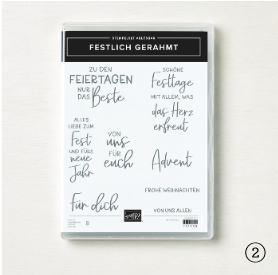 FESTLICH GERAHMT
ZU DEN
FEIERTAGEN
NUR
DAS Beste
SCHÖNE
Festtage
MIT ALLEM, WAS
das Herz
erfreut
ALLES
LIEBE ZUM
Fest
UND FÜRS
neue
Jahr
Von
uns
FÜR
euch
Advent
FROHE WEIHNACHTEN
Für dich
VON UNS ALLEN
2